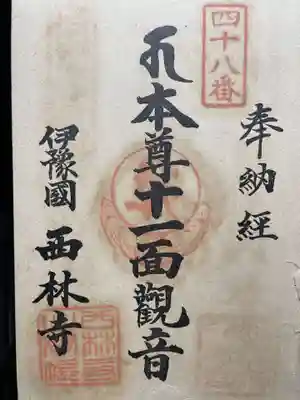 四十八番
奉納経
本尊十一面觀音
伊豫國 西林寺